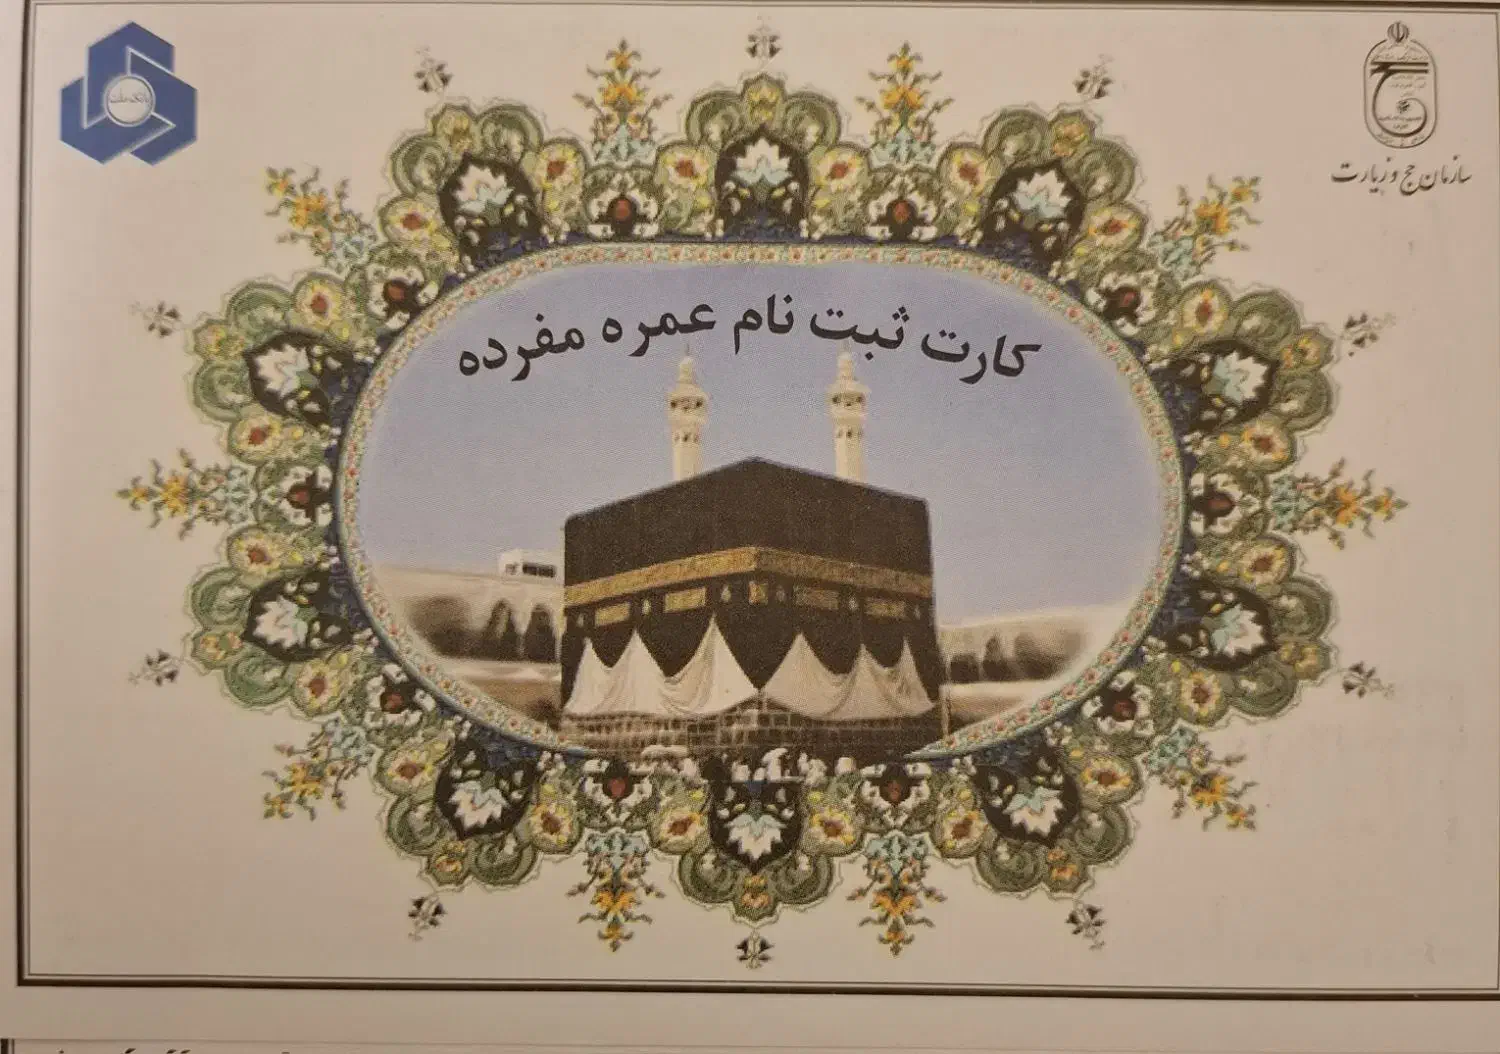 بانک ملت
سازمان حج و زیارت
کارت ثبت نام عمره مفرده